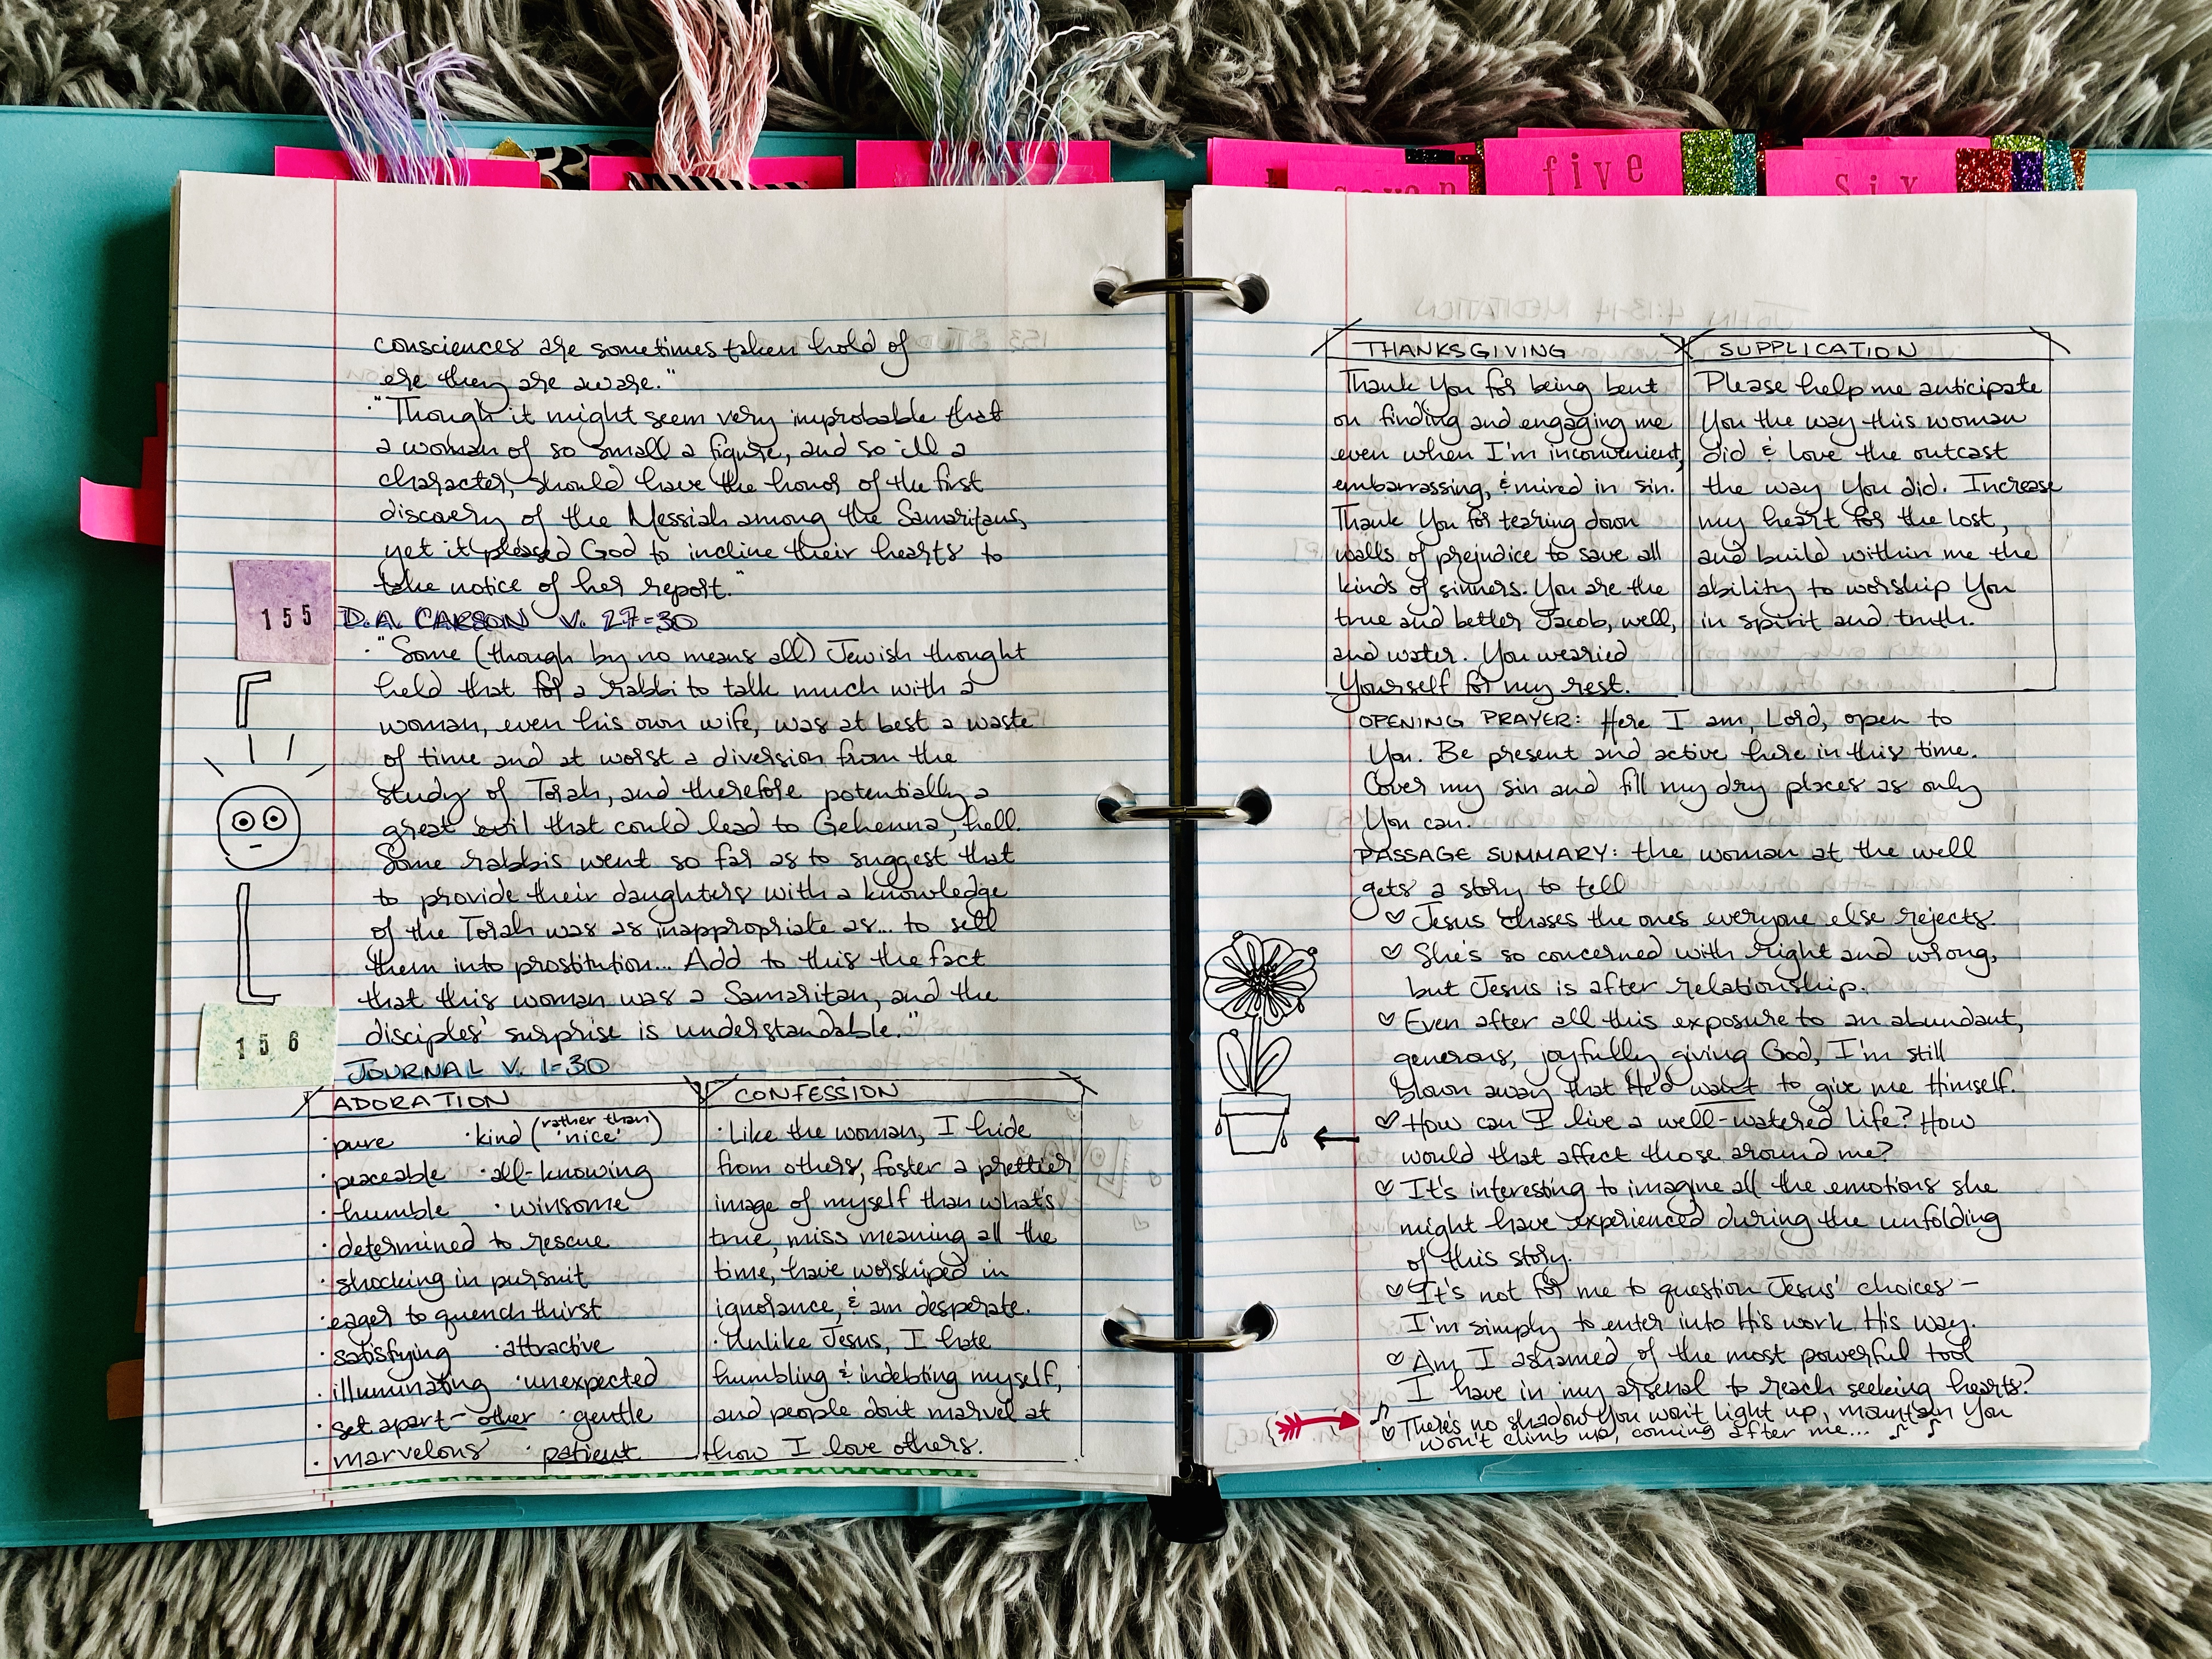 seven
five
six
consciences are sometimes taken hold of
ere they are aware."
·"Though it might seem very improbable that
a woman of so small a figure, and so ill a
character, should have the honor of the first
discovery of the Messiah among the Samaritans,
yet it pleased God to incline their hearts to
take notice of her report."
155
D.A. CARSON V. 27-30
·"Some (though by no means all) Jewish thought
held that for a rabbi to talk much with a
woman, even his own wife, was at best a waste
of time and at worst a diversion from the
study of Torah, and therefore potentially a
great evil that could lead to Gehenna, hell.
Some rabbis went so far as to suggest that
to provide their daughters with a knowledge
of the Torah was as inappropriate as... to sell
them into prostitution... Add to this the fact
that this woman was a Samaritan, and the
disciples' surprise is understandable."
156
JOURNAL V. 1-30
ADORATION
·pure ·kind (rather than 'nice')
·peaceable ·all-knowing
·humble ·winsome
·determined to rescue
·shocking in pursuit
·eager to quench thirst
·satisfying ·attractive
·illuminating ·unexpected
·set apart-other ·gentle
·marvelous ·patient
CONFESSION
·Like the woman, I hide
from others, foster a prettier
image of myself than what's
true, miss meaning all the
time, have worshiped in
ignorance, & am desperate.
·Unlike Jesus, I hate
humbling & indebting myself,
and people don't marvel at
how I love others.
THANKSGIVING
Thank You for being bent
on finding and engaging me
even when I'm inconvenient,
embarrassing, & mired in sin.
Thank You for tearing down
walls of prejudice to save all
kinds of sinners. You are the
true and better Jacob, well,
and water. You wearied
Yourself for my rest.
SUPPLICATION
Please help me anticipate
You the way this woman
did & love the outcast
the way You did. Increase
my heart for the lost,
and build within me the
ability to worship You
in spirit and truth.
OPENING PRAYER: Here I am, Lord, open to
You. Be present and active here in this time.
Cover my sin and fill my dry places as only
You can.
PASSAGE SUMMARY: the woman at the well
gets a story to tell
♡ Jesus chases the ones everyone else rejects.
♡ She's so concerned with right and wrong,
but Jesus is after relationship.
♡ Even after all this exposure to an abundant,
generous, joyfully giving God, I'm still
blown away that He'd want to give me Himself.
♡ How can I live a well-watered life? How
would that affect those around me?
♡ It's interesting to imagine all the emotions she
might have experienced during the unfolding
of this story.
♡ It's not for me to question Jesus' choices –
I'm simply to enter into His work His way.
♡ Am I ashamed of the most powerful tool
I have in my arsenal to reach seeking hearts?
♡ There's no shadow You won't light up, mountain You
won't climb up, coming after me...